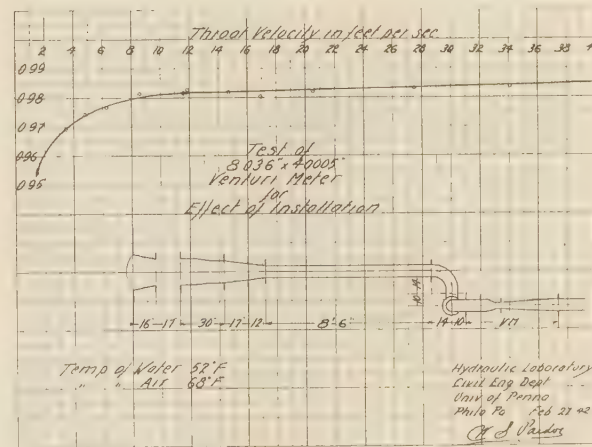 Throat Velocity in feet per sec
2 4 6 8 10 12 14 16 18 20 22 24 26 28 30 32 34 36 38
099
098
097
096
095
Test of
8036" x 40005"
Venturi Meter
for
Effect of Installation
16 17 30" 17 12 8'-6" 14 10 VM
Temp of Water 52°F
" " Air 68°F
Hydraulic Laboratory
Civil Eng Dept
Univ of Penna
Phila Pa Feb 27 42